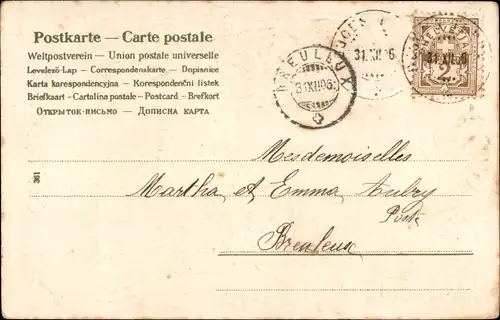 Postkarte — Carte postale
Weltpostverein — Union postale universelle
Levelező-Lap — Correspondenskarte — Dopisnice
Karta korespondencyjna — Korespondenční lístek
Briefkaart — Cartolina postale — Postcard — Brefkort
ОТКРЫТОЕ-ПИСЬМО — ДОПИСНА КАРТА
BREULEUX
31XII06
31.XII.06
HELVETIA
2
31.XII.06
361
Mesdemoiselles
Martha et Emma Aubry
Poste
Breuleux